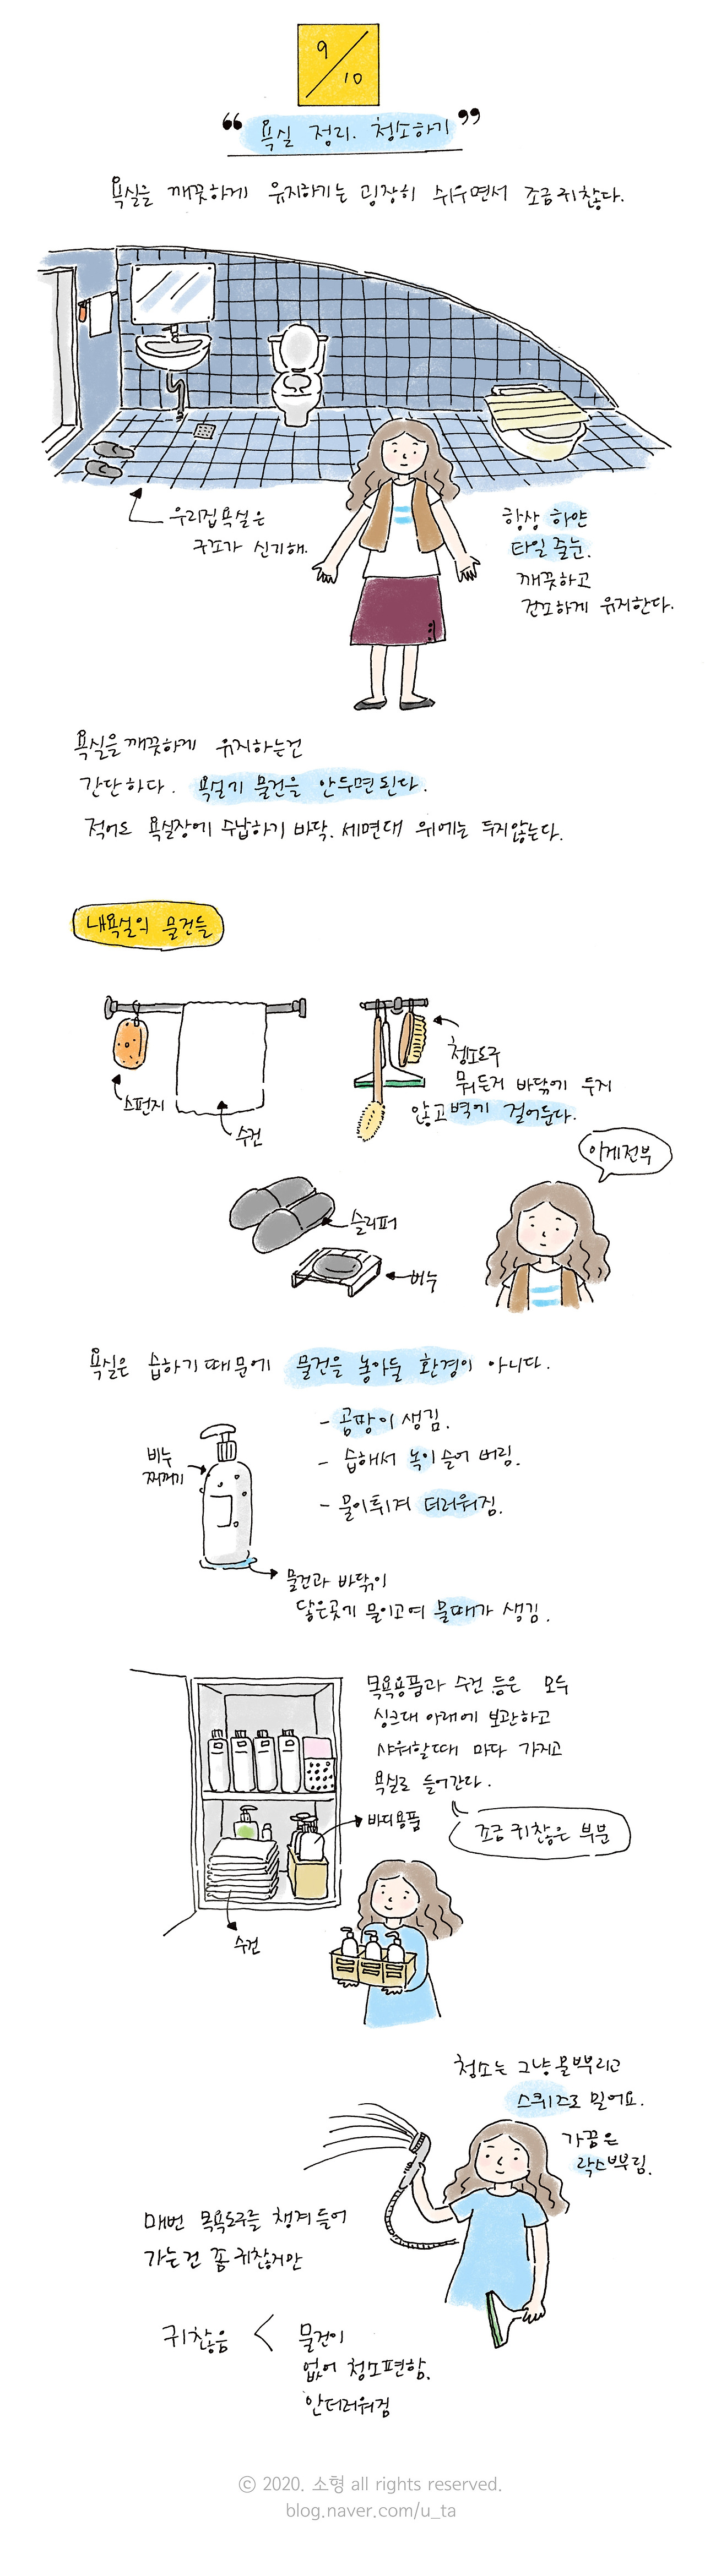 9/10
“욕실 정리. 청소하기”
욕실을 깨끗하게 유지하기는 굉장히 쉬우면서 조금 귀찮다.
우리집 욕실은
구조가 신기해.
항상 하얀
타일 줄눈.
깨끗하고
건조하게 유지한다.
욕실을 깨끗하게 유지하는건
간단하다. 욕실에 물건을 안두면 된다.
적어도 욕실장에 수납하기 바닥. 세면대 위에는 두지않는다.
내욕실의 물건들
스펀지
수건
청소도구
뭐든지 바닥에 두지
않고 벽에 걸어둔다.
이게전부
슬리퍼
비누
욕실은 습하기 때문에 물건을 놓아둘 환경이 아니다.
- 곰팡이 생김.
- 습해서 녹이 슬어 버림.
- 물이튀겨 더러워짐.
비누
찌꺼기
물건과 바닥이
닿은곳에 물이고여 물때가 생김.
목욕용품과 수건 등은 모두
싱크대 아래에 보관하고
샤워할때 마다 가지고
욕실로 들어간다.
조금 귀찮은 부분
바디용품
수건
청소는 그냥 물뿌리고
스퀴즈로 밀어요.
가끔은
락스뿌림.
매번 목욕도구를 챙겨들어
가는건 좀 귀찮지만
귀찮음 < 물건이
없어 청소편함.
안더러워짐
© 2020. 소형 all rights reserved.
blog.naver.com/u_ta